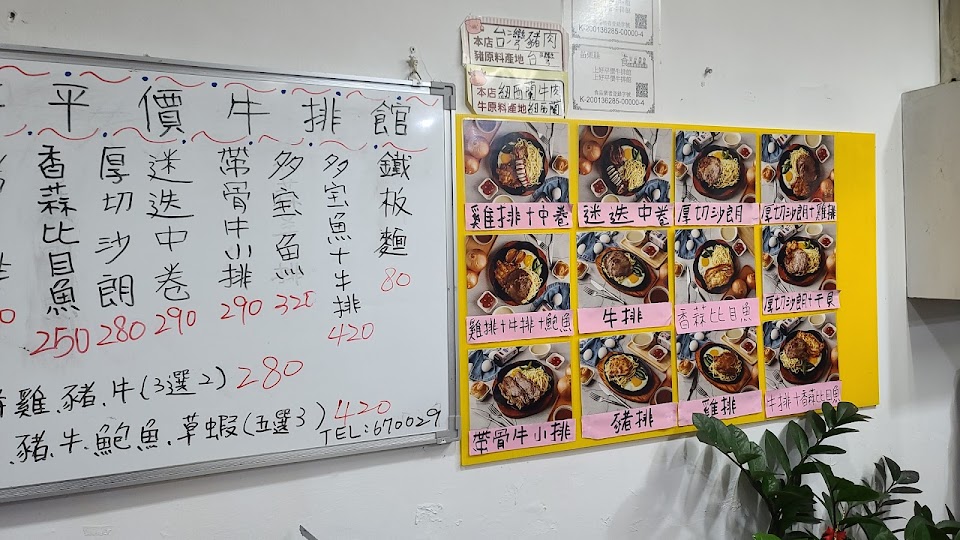 平價牛排館
鐵板麵 80
多宝魚十牛排 420
多宝魚 325
帶骨牛小排 290
迷迭中卷 290
厚切沙朗 280
香蒜比目魚 250
雞.豬.牛(3選2) 280
豬.牛.鮑魚.草蝦(五選3) 420
TEL:670029
本店台灣豬肉
豬原料產地台灣
本店紐西蘭牛肉
牛原料產地紐西蘭
K-200136285-00000-4
上好平價牛排館
食品業者登錄字號
K-200136285-00000-4
雞排十中卷
迷迭中卷
厚切沙朗
厚切沙朗十雞排
雞排十牛排十鮑魚
牛排
香蒜比目魚
厚切沙朗十干貝
帶骨牛小排
豬排
雞排
牛排十香蒜比目魚